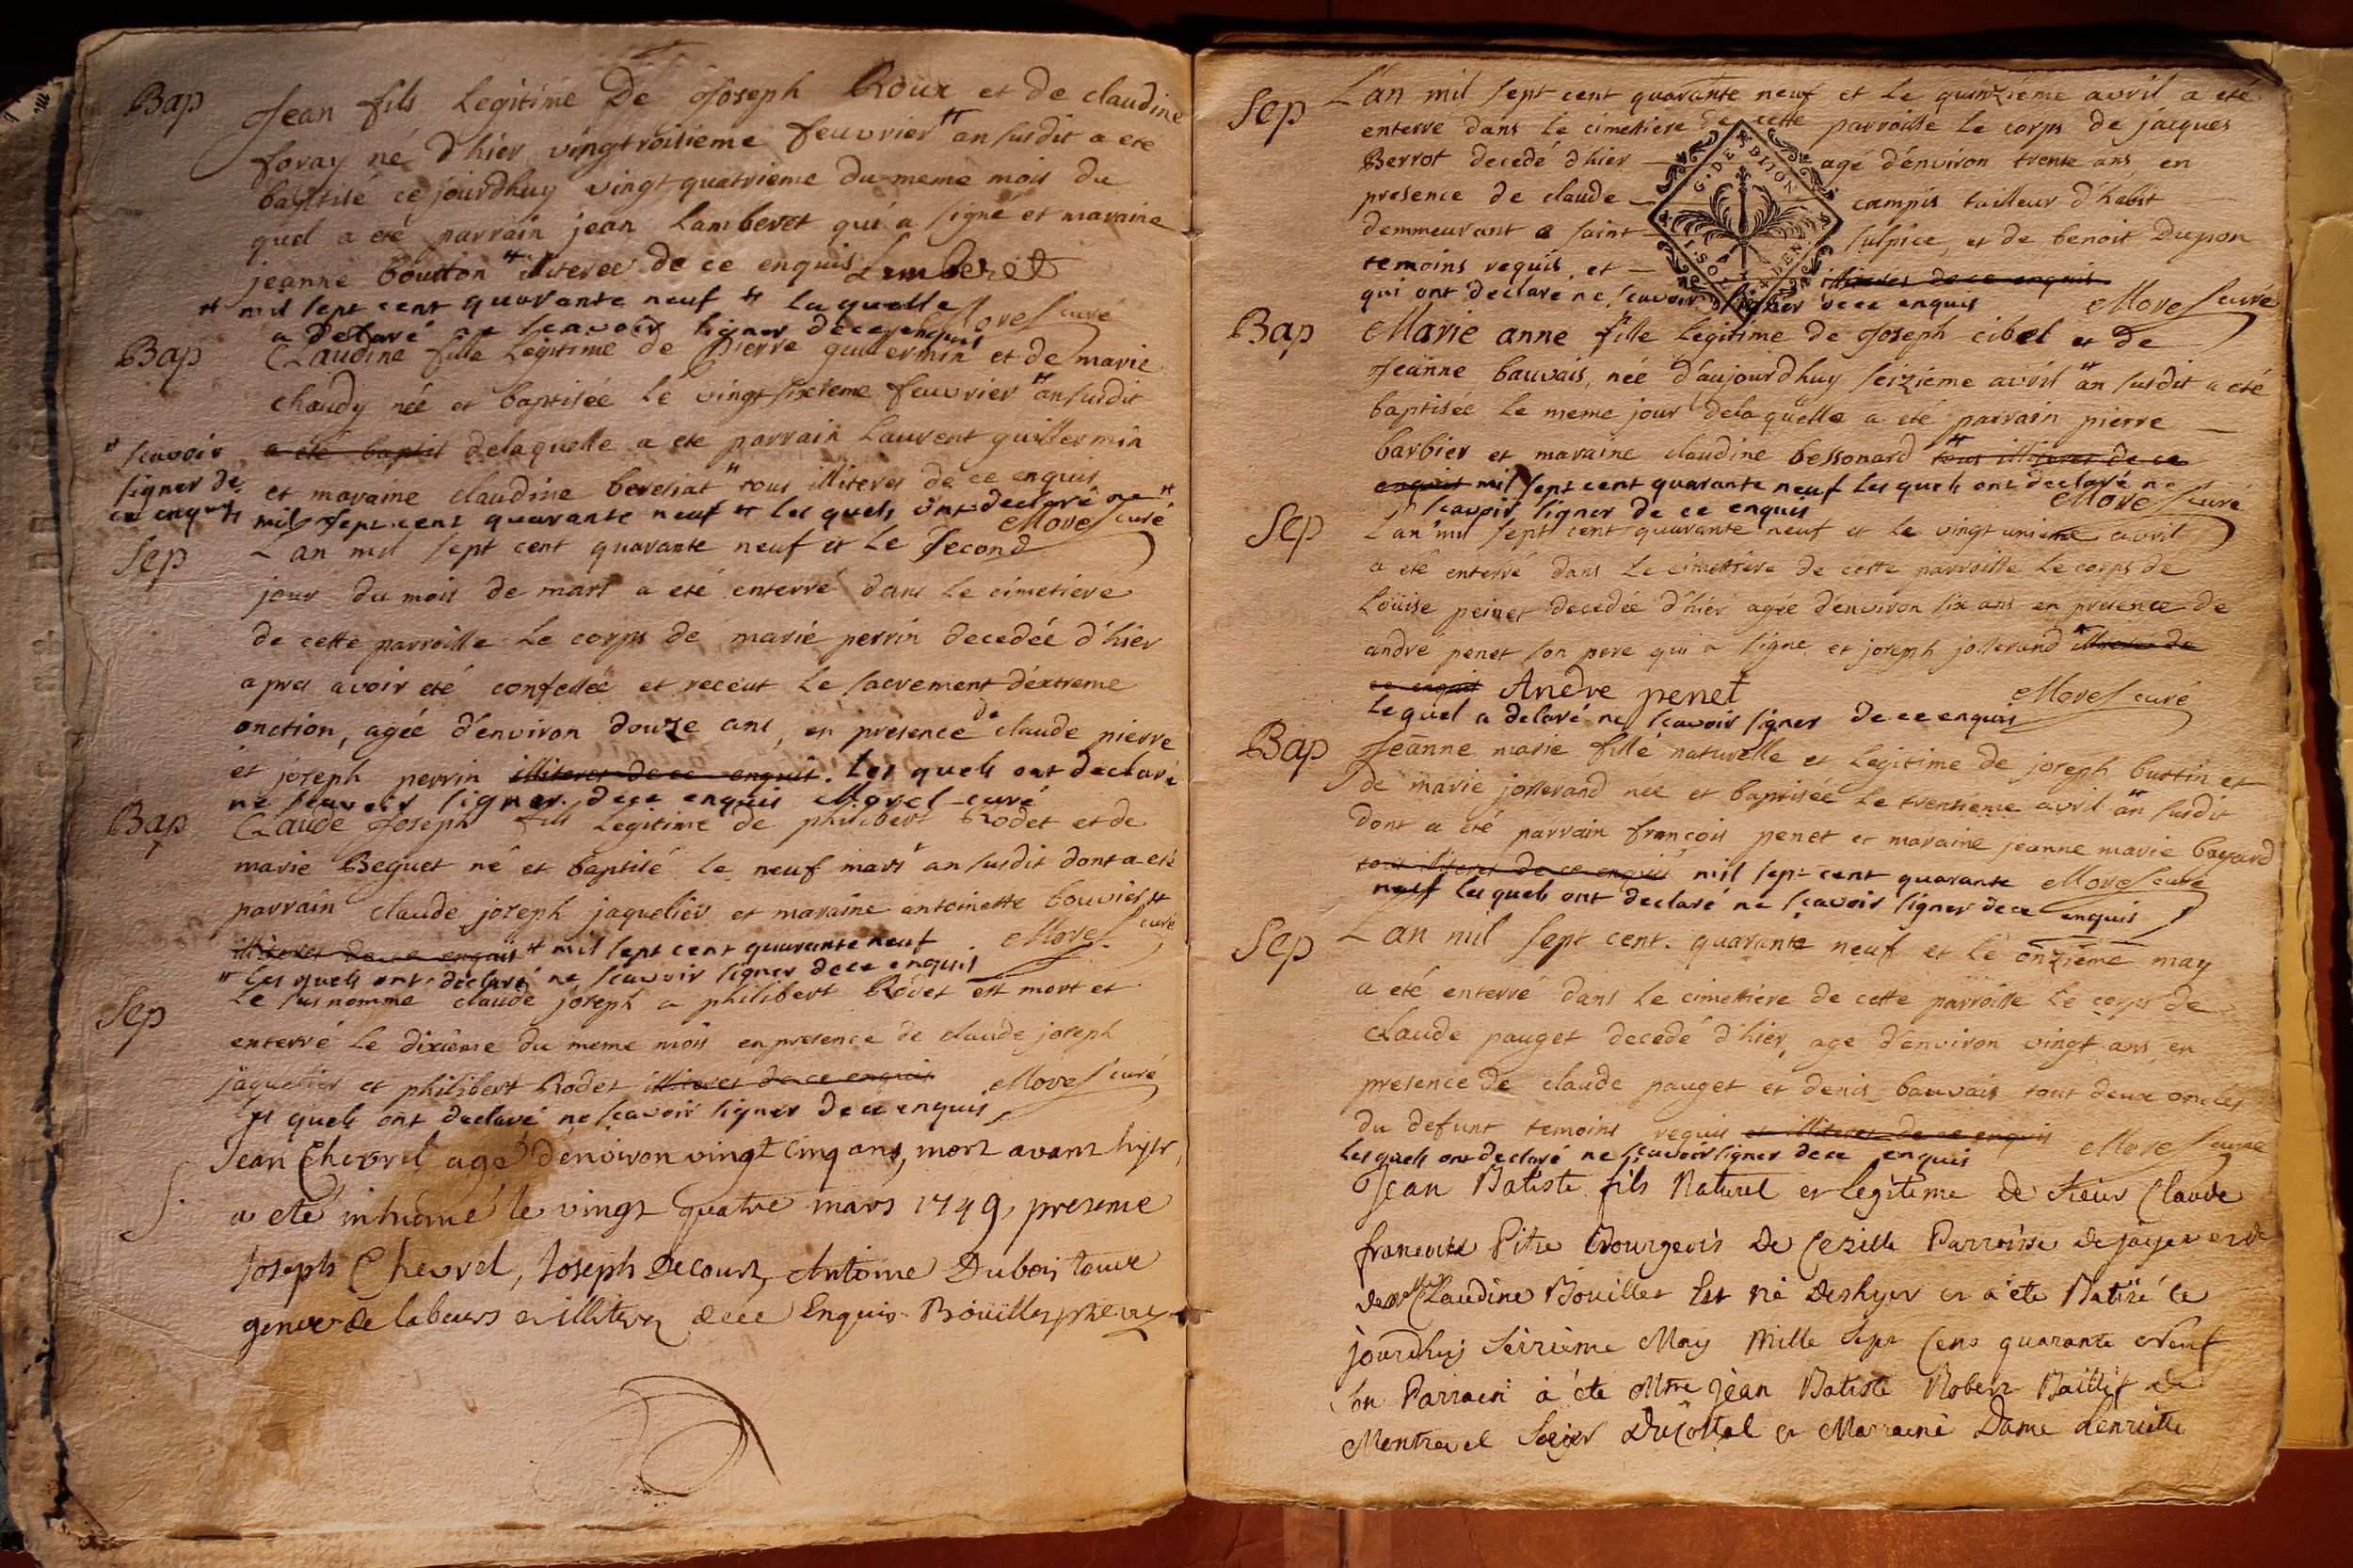 Bap
Jean fils Legitime De Joseph Roux et de claudine
foray né d'hier vingtroisieme feuvrier # an susdit a eté
baptisé ce jourdhuy vingt quatrieme du meme mois du
quel a eté parrain jean Lamberet qui a signé et maraine
jeanne bouiton # illiteree de ce enquis Lemberet
# mil sept cent quarante neuf # laquelle
a Declaré ne scavoir signer de ce enquis Morel curé
Bap
Claudine fille Legitime de Pierre guillermin et de marie
chaudy née et baptisée le vingt sixieme feuvrier # an susdit
a eté baptis delaquelle a ete parrain Laurent guillermin
et maraine claudine bereziat # tous illiteres de ce enquis
mil sept cent quarante neuf # les quels ont declaré ne #
# scavoir
signer de
ce enquis
Morel curé
Sep
L an mil sept cent quarante neuf et Le second
jour du mois de mars a eté enterré dans Le cimetiere
de cette parroisse Le corps de marie perrin decedée d'hier
apres avoir eté confessée et receut Le sacrement d'extreme
onction, agée d'environ douze ans, en presence de claude pierre
et joseph perrin illiteres de ce enquis. Les quels ont declaré
ne scavoir signer. de ce enquis Morel curé
Bap
Claude Joseph fils Legitime de philibert Rodet et de
marie Beguet né et baptisé le neuf mars # an susdit dont a eté
parrain claude joseph jaquelier et maraine antoinette bouvier #
illiteres de ce enquis # mil sept cent quarante neuf Morel curé
# Les quels ont declaré ne scavoir signer de ce enquis
Sep
Le susnommé claude joseph a philibert Rodet est mort et
enterré Le dixieme du meme mois en presence de claude joseph
jaquelier et philibert Rodet illiteres de ce enquis Morel curé
Les quels ont declaré ne scavoir signer de ce enquis
S.
Jean Chevrel agé d'environ vingt cinq ans, mort avant hyer,
a eté inhumé le vingt quatre mars 1749, presence
Joseph Chevrel, Joseph Decourt, Antoine Dubois tous
gens de labeurs et illiteres de ce Enquis
Sep
L'an mil sept cent quarante neuf et Le quinzieme avril a eté
enterré dans Le cimettiere de cette parroisse Le corps de jacques
Berrot decedé d'hier agé d'environ trente ans en
presence de claude campis tailleur d'habit
demmeurant a saint sulpice, et de benoit Dupon
temoins requis, et illiteres de ce enquis
qui ont declaré ne scavoir signer de ce enquis Morel curé
G. DE DIJON
Bap
Marie anne fille Legitime de Joseph cibel et de
Jeanne bauvais, née d'aujourdhuy seizieme avril # an susdit a eté
baptisée Le meme jour delaquelle a eté parrain pierre
barbier et maraine claudine bessonard # tous illiteres de ce
enquis mil sept cent quarante neuf Les quels ont declaré ne
scavoir signer de ce enquis Morel curé
Sep
L an mil sept cent quarante neuf et Le vingt unieme avril
a eté enterré dans Le cimettiere de cette parroisse Le corps de
Loüise peinet decedée d'hier agée d'environ six ans en presence de
andré penet son pere qui a signe et joseph josserand # illiteré de
ce enquis Andre penet Morel curé
Lequel a declaré ne scavoir signer de ce enquis
Bap
Jeanne marie fille naturelle et Legitime de joseph buttin et
de marie josserand née et baptisée Le trentieme avril # an susdit
dont a eté parrain françois penet et maraine jeanne marie bayard
tous illiteres de ce enquis mil sept cent quarante Morel curé
neuf les quels ont declaré ne scavoir signer de ce enquis
Sep
L an mil sept cent. quarante neuf et Le onzieme may
a été enterré dans Le cimettiere de cette parroisse Le corps de
Claude pauget decedé d'hier, agé d'environ vingt ans, en
presence de claude pauget et denis bauvais tout deux oncles
du defunt temoins requis et illiteres de ce enquis Morel curé
Les quels ont declaré ne scavoir signer de ce enquis
Jean Batiste fils Naturel et legitime de Sieur Claude
francois Pitre Bourgeois De Cezille Parroisse de jayat et de
Claudine Bouillet Est né Deshyer et a ete Batisé ce
jourdhuy Seizieme May Mille Sept Cens quarante Neuf
Son Parrain a éte Mtre Jean Batiste Robert Baillif de
Montrevel et Marraine Dame henriette